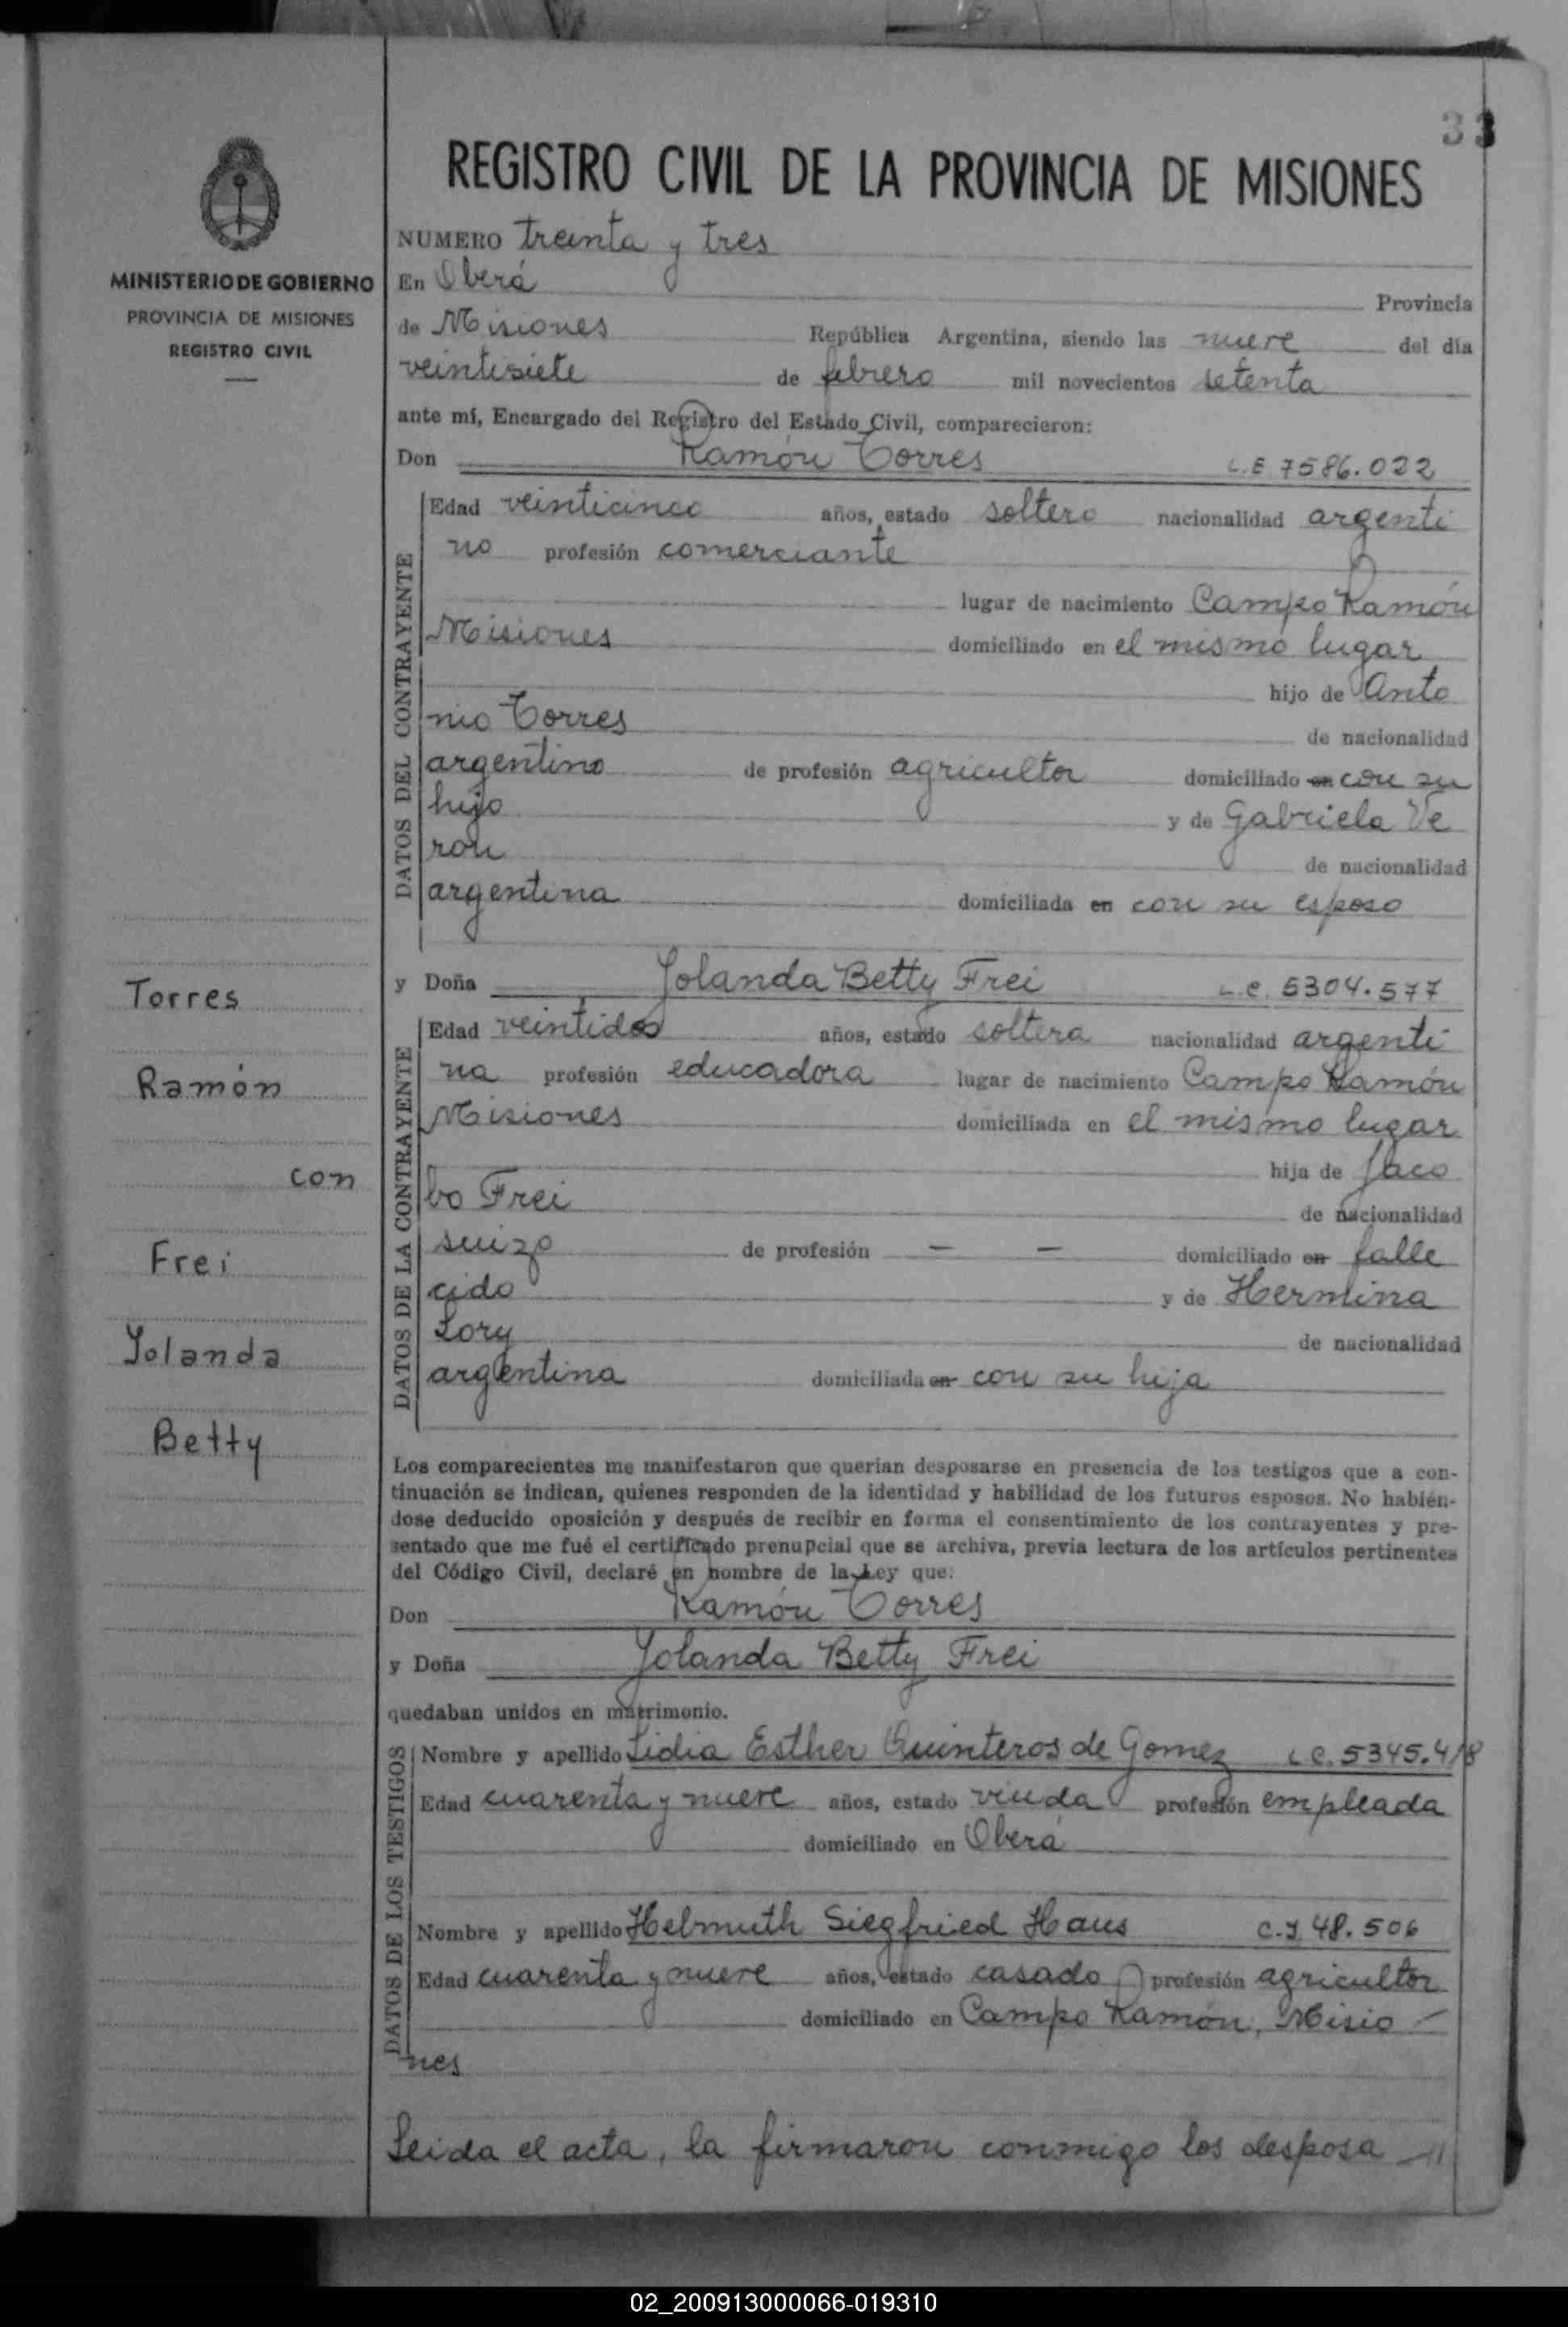 33
REGISTRO CIVIL DE LA PROVINCIA DE MISIONES
MINISTERIO DE GOBIERNO
PROVINCIA DE MISIONES
REGISTRO CIVIL
Torres
Ramón
con
Frei
Yolanda
Betty
NUMERO treinta y tres
En Oberá Provincia
de Misiones República Argentina, siendo las nueve del día
veintisiete de febrero mil novecientos setenta
ante mí, Encargado del Registro del Estado Civil, comparecieron:
Don Ramón Torres L.E 7586.022
DATOS DEL CONTRAYENTE
Edad veinticinco años, estado soltero nacionalidad argenti
no profesión comerciante
lugar de nacimiento Campo Ramón
Misiones domiciliado en el mismo lugar
hijo de Anto
nio Torres de nacionalidad
argentino de profesión agricultor domiciliado en con su
hijo y de Gabriela Ve
ron de nacionalidad
argentina domiciliada en con su esposo
y Doña Yolanda Betty Frei L.C. 5304.577
DATOS DE LA CONTRAYENTE
Edad veintidos años, estado soltera nacionalidad argenti
na profesión educadora lugar de nacimiento Campo Ramón
Misiones domiciliada en el mismo lugar
hija de Jaco
bo Frei de nacionalidad
suizo de profesión — — domiciliado en falle
cido y de Hermina
Lory de nacionalidad
argentina domiciliada en con su hija
Los comparecientes me manifestaron que querían desposarse en presencia de los testigos que a con-
tinuación se indican, quienes responden de la identidad y habilidad de los futuros esposos. No habién-
dose deducido oposición y después de recibir en forma el consentimiento de los contrayentes y pre-
sentado que me fué el certificado prenupcial que se archiva, previa lectura de los artículos pertinentes
del Código Civil, declaré en nombre de la Ley que:
Don Ramón Torres
y Doña Yolanda Betty Frei
quedaban unidos en matrimonio.
DATOS DE LOS TESTIGOS
Nombre y apellido Lidia Esther Quinteros de Gomez L.C. 5345.418
Edad cuarenta y nueve años, estado viuda profesión empleada
domiciliado en Oberá
Nombre y apellido Helmuth Siegfried Haus C.I 48.506
Edad cuarenta y nueve años, estado casado profesión agricultor
domiciliado en Campo Ramón, Misio-
nes
Leida el acta, la firmaron conmigo los desposa
02_200913000066-019310